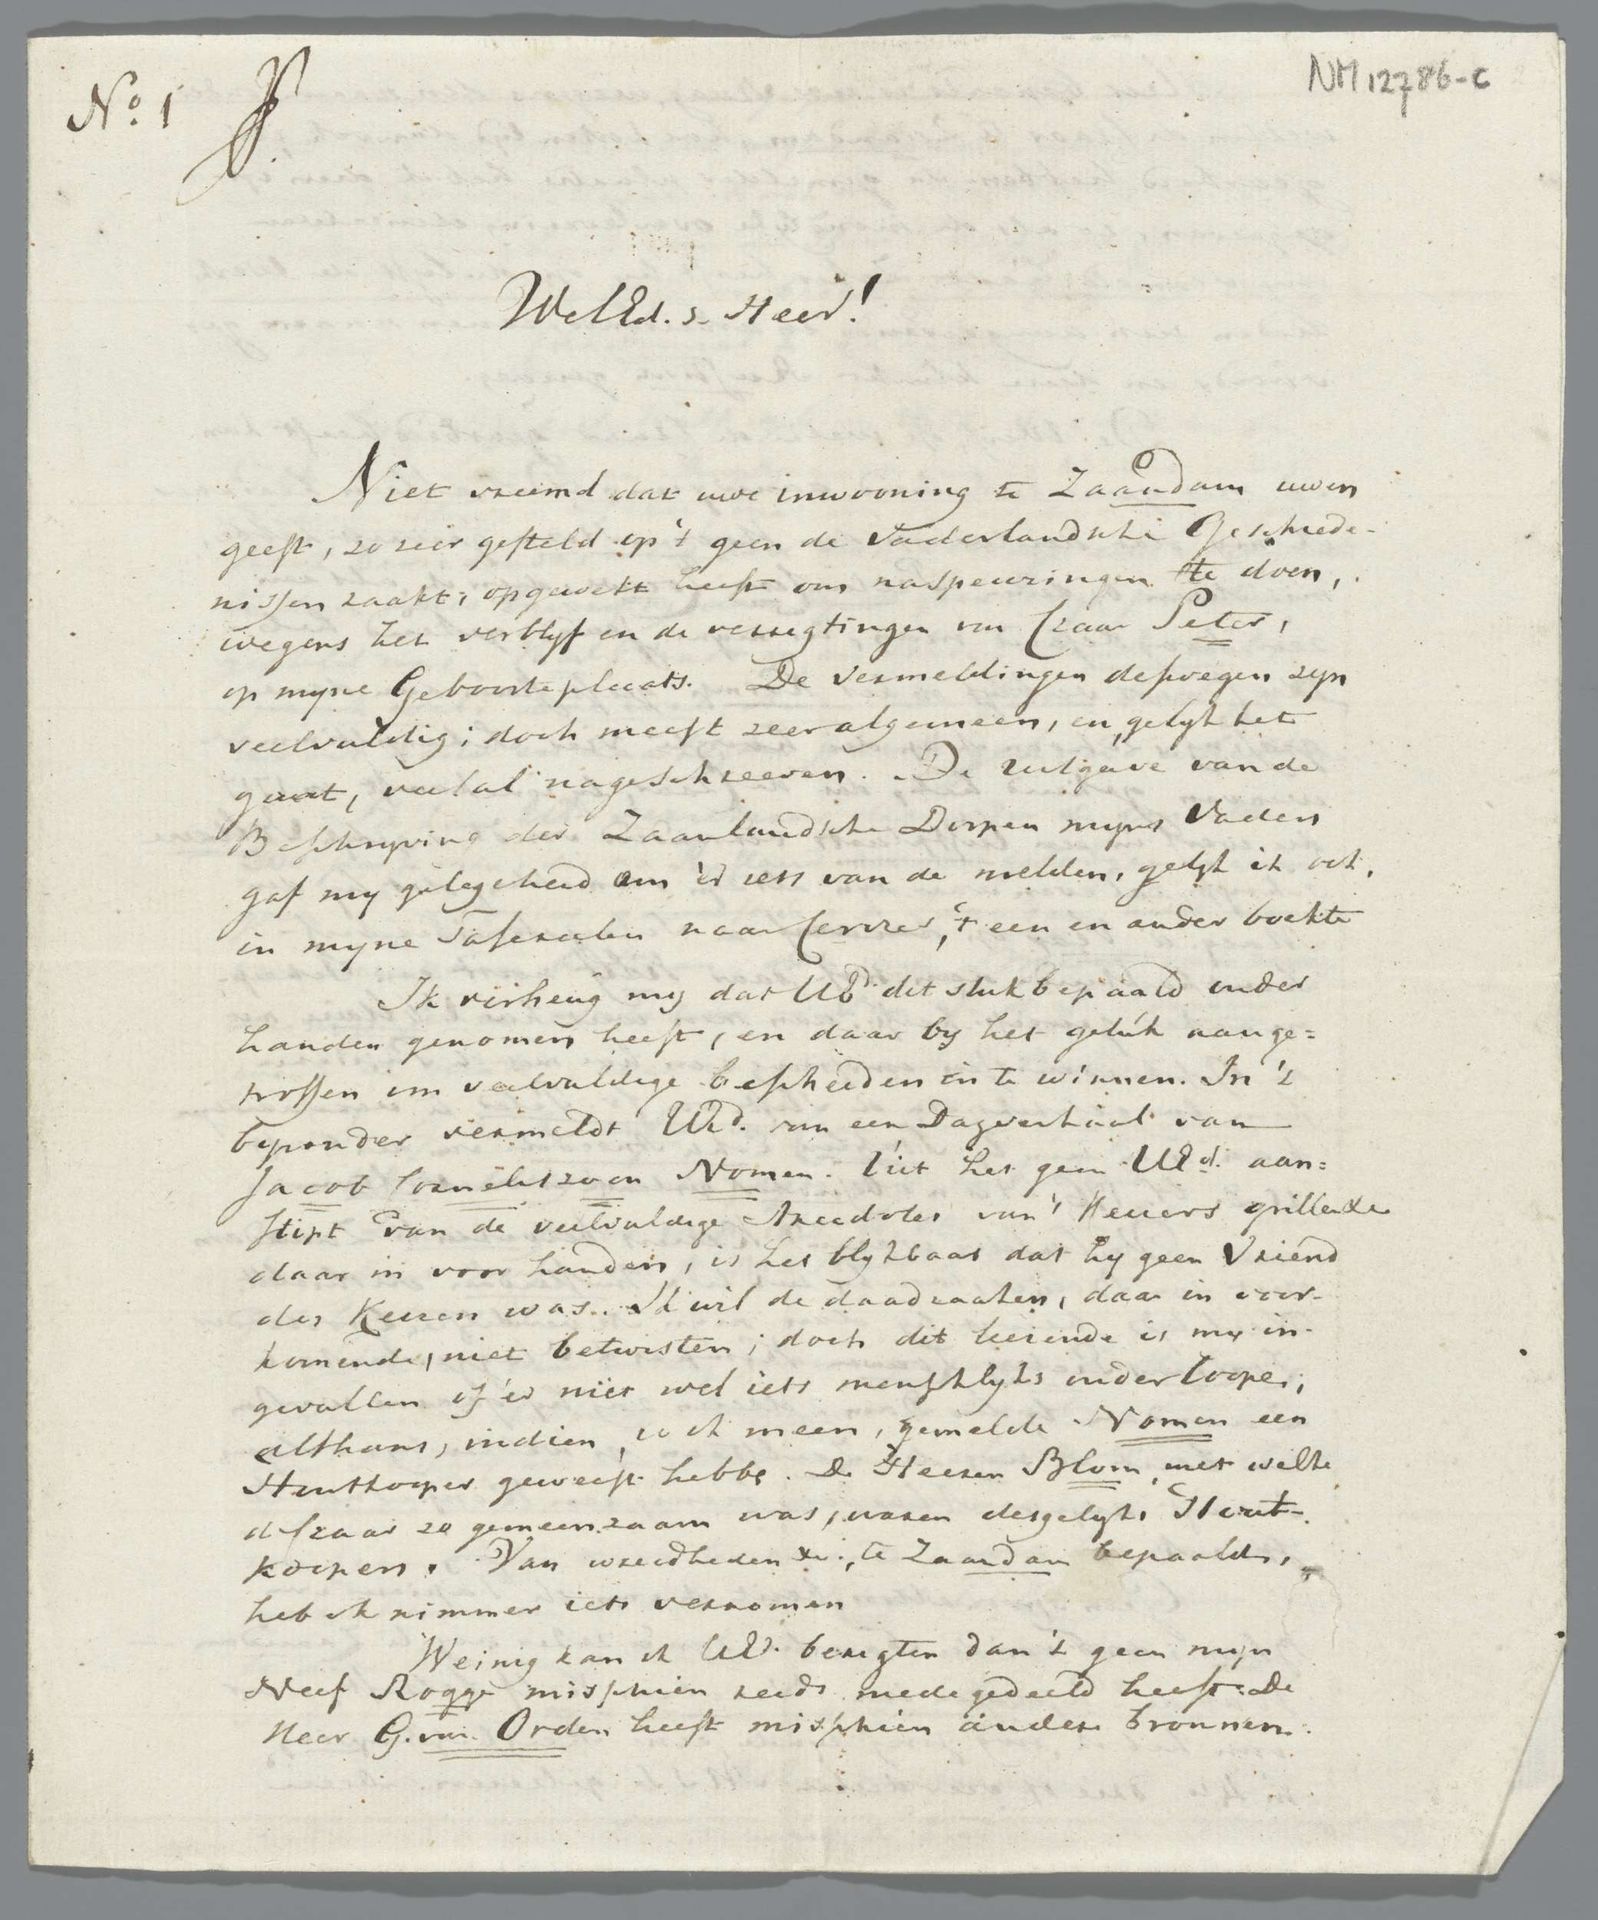 No. 1
NM 12786-C
WelEd. s. Heer!
Niet vreemd dat uwe inwooning te Zaandam uwen
geest, zo zeer gesteld op 't geen de Vaderlandsche Geschiede-
nissen raakt, opgewekt heeft om naspeuringen te doen,
wegens het verblyf en de verregtingen van Czaar Peter,
op myne Geboorteplaats. De vermeldingen desweegen zyn
veelvuldig; doch meest zeer algemeen, en, gelyk het
gaat, veelal nageschreeven. De uitgave van de
Beschryving der Zaanlandsche Dorpen myns Vaders
gaf my gelegeheid om 'er iets van de melden, gelyk ik ook,
in myne Tafereelen naar Cerisier, 't een en ander boekte
Ik verheug my dat UEd. dit stuk bepaald onder
handen genomen heeft, en daar by het geluk aange=
troffen om veelvuldige bescheiden in te winnen. In 't
byzonder vermeldt UEd. van een Dagverhaal van
Jacob Corneliszoon Nomen. Uit het geen UEd. aan=
stipt van de veelvuldige Anecdotes van 's Keizers grillende
daar in voor handen, is het blykbaar dat hy geen Vriend
des Keizers was. Ik wil de daadzaaken, daar in voor-
komende, niet betwisten; doch dit leezende is my in-
gevallen of 'er niet wel iets menschlyks onder loope,
althans, indien, zo ik meen, gemelde Nomen een
Houtkooper geweest hebbe. De Heeren Blom, met welke
de Czaar zo gemeenzaam was, waren desgelyks Hout-
koopers. Van wreedheden &c., te Zaandam bepaald,
heb ik nimmer iets vernomen
Weinig kan ik UEd. berigten dan 't geen myn
Neef Rogge misschien reeds medegedeeld heeft. De
Heer G. van Orden heeft misschien andere bronnen.